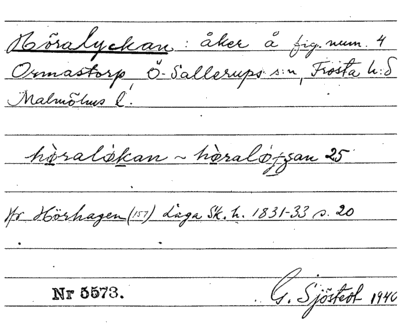 Höralyckan : åker å fig. num. 4
Ormastorp, Ö. Sallerups s:n, Frosta h:d
Malmöhus l.
höralökan ~ höraløggan 25
Jfr Hörhagen (157) d:aga Sk. h. 1831-33 s. 20
Nr 5573.
G. Sjöstedt 1940